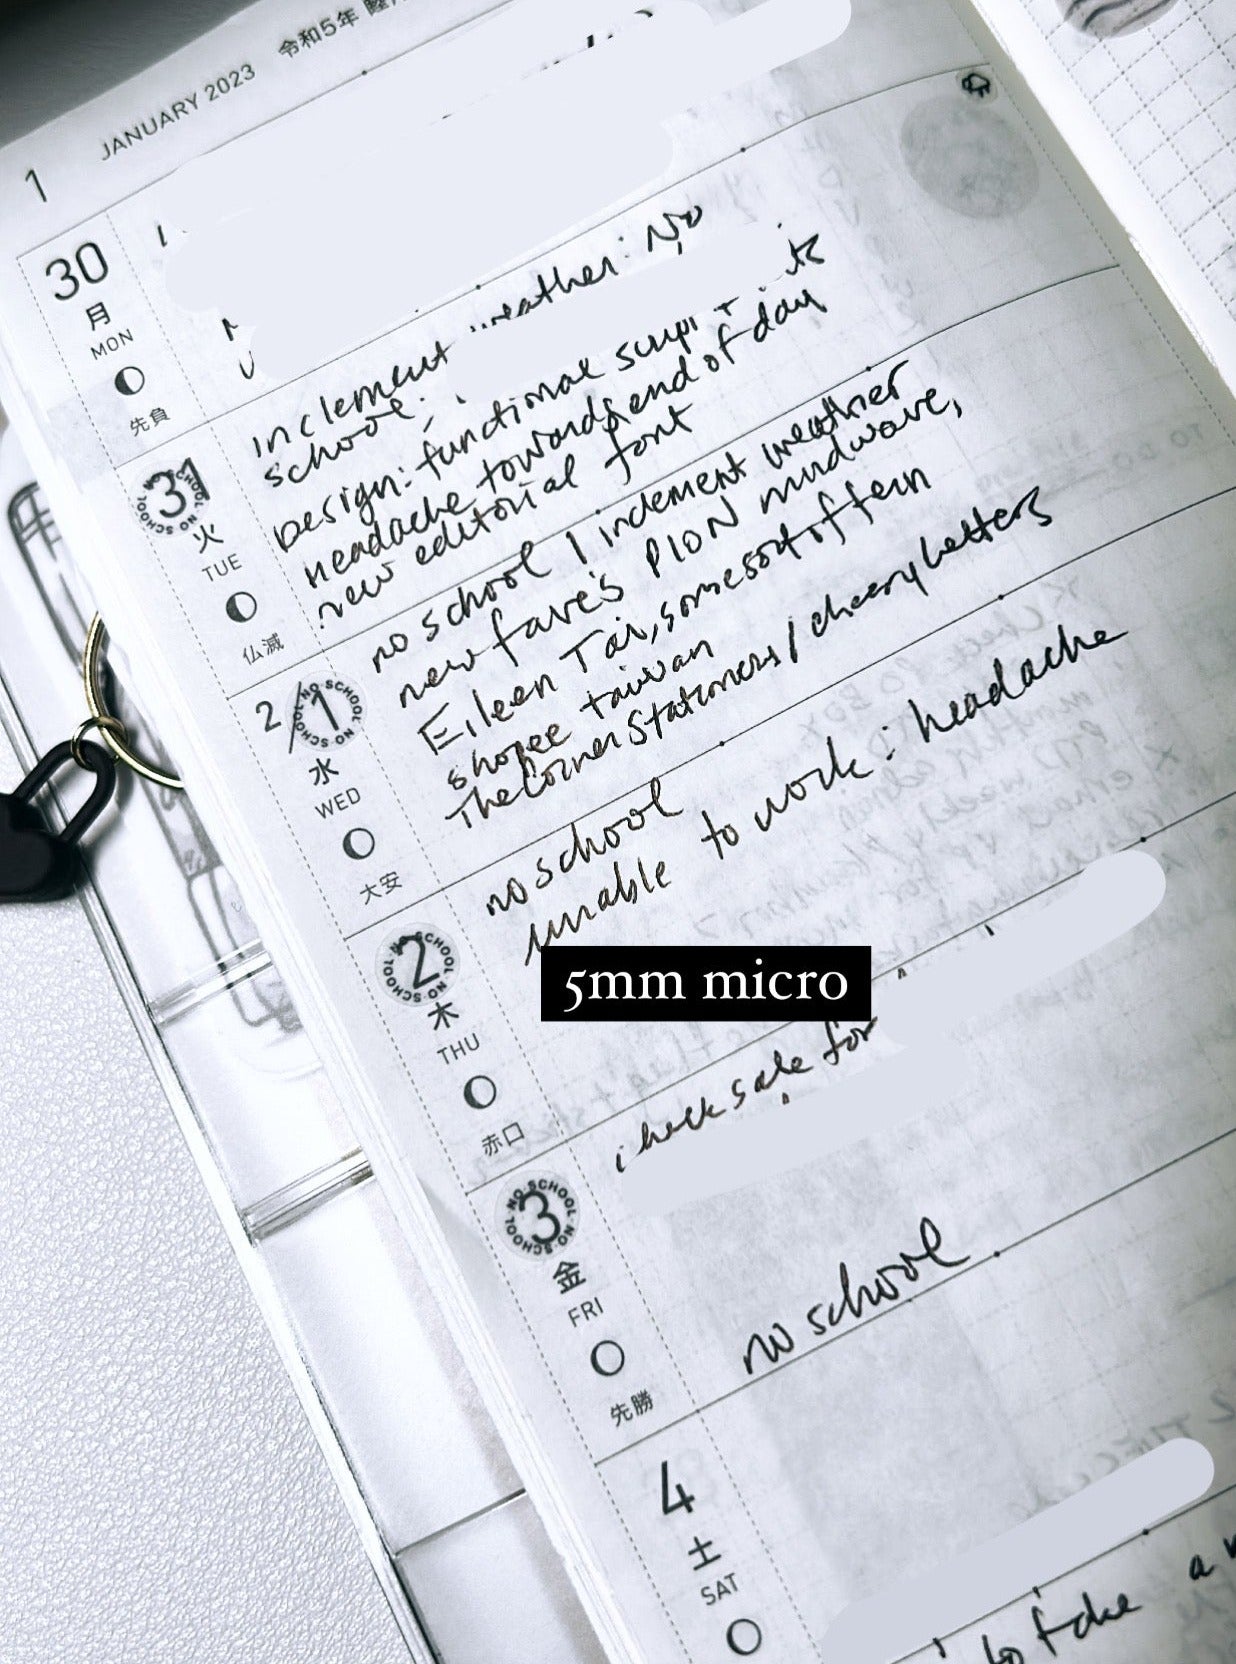 JANUARY 2023 令和5年
1
30
月
MON
先負
inclement weather: No
school;
Design: functional script
headache towards end of day
new editorial font
NO SCHOOL NO SCHOOL
31
火
TUE
仏滅
no school / inclement weather
new fave's PION mudwave,
Eileen Tai, some sort of fern
shopee taiwan
The Corner Stationers / cheery letters
2/1
NO SCHOOL NO SCHOOL
水
WED
大安
no school
unable to work: headache
5mm micro
2
NO SCHOOL NO SCHOOL
木
THU
赤口
check sale for
no school
3
NO SCHOOL NO SCHOOL
金
FRI
先勝
4
土
SAT
to take a
TO DO